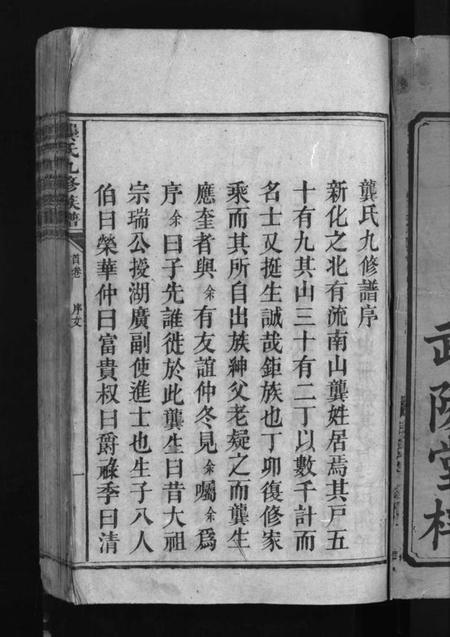 武陵堂梓
龔氏九修譜序
新化之北有流南山龔姓居焉其戸五
十有九其山三十有二丁以數千計而
名士又挺生誠哉鉅族也丁卯復修家
乘而其所自出族紳父老疑之而龔生
應奎者與余有友誼仲冬見余囑余爲
序余曰子先誰徙於此龔生曰昔大祖
宗瑞公授湖廣副使進士也生子八人
伯曰榮華仲曰富貴叔曰爵祿季曰清
龔氏九修族譜
首卷 序文 一